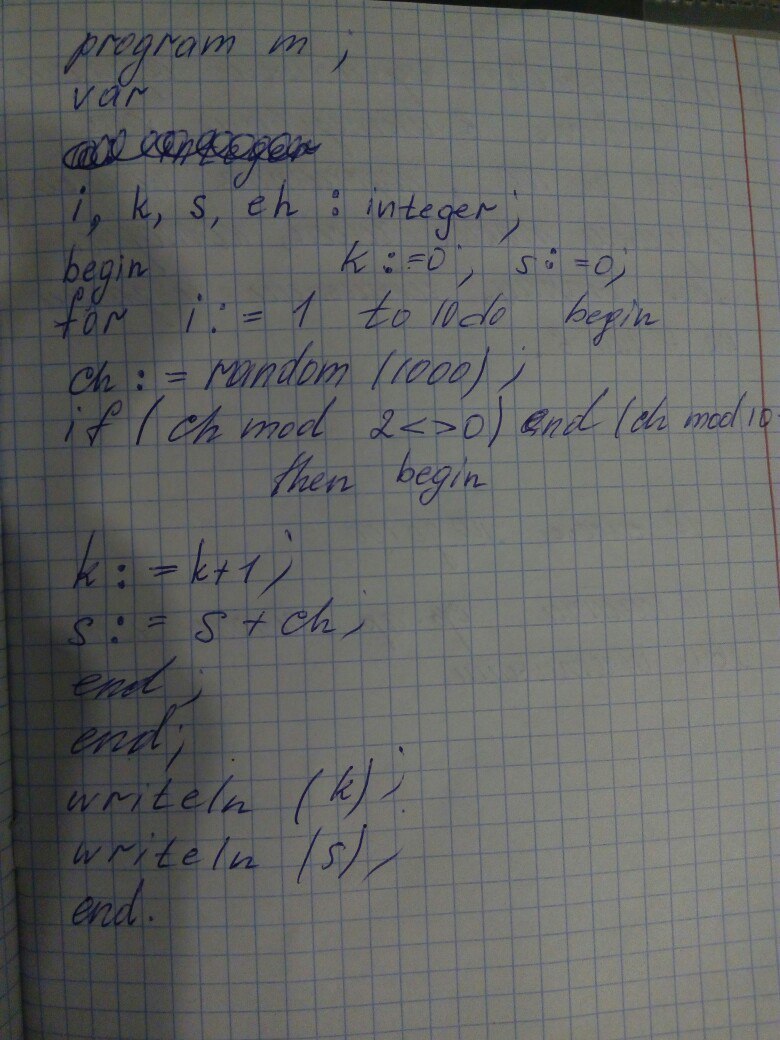 program m;
var
i, k, s, ch : integer;
begin k:=0; s:=0;
for i:= 1 to 10 do begin
ch := random (1000);
if (ch mod 2<>0) and (ch mod 10
then begin
k:= k+1;
s:= s + ch;
end;
end;
writeln (k);
writeln (s);
end.